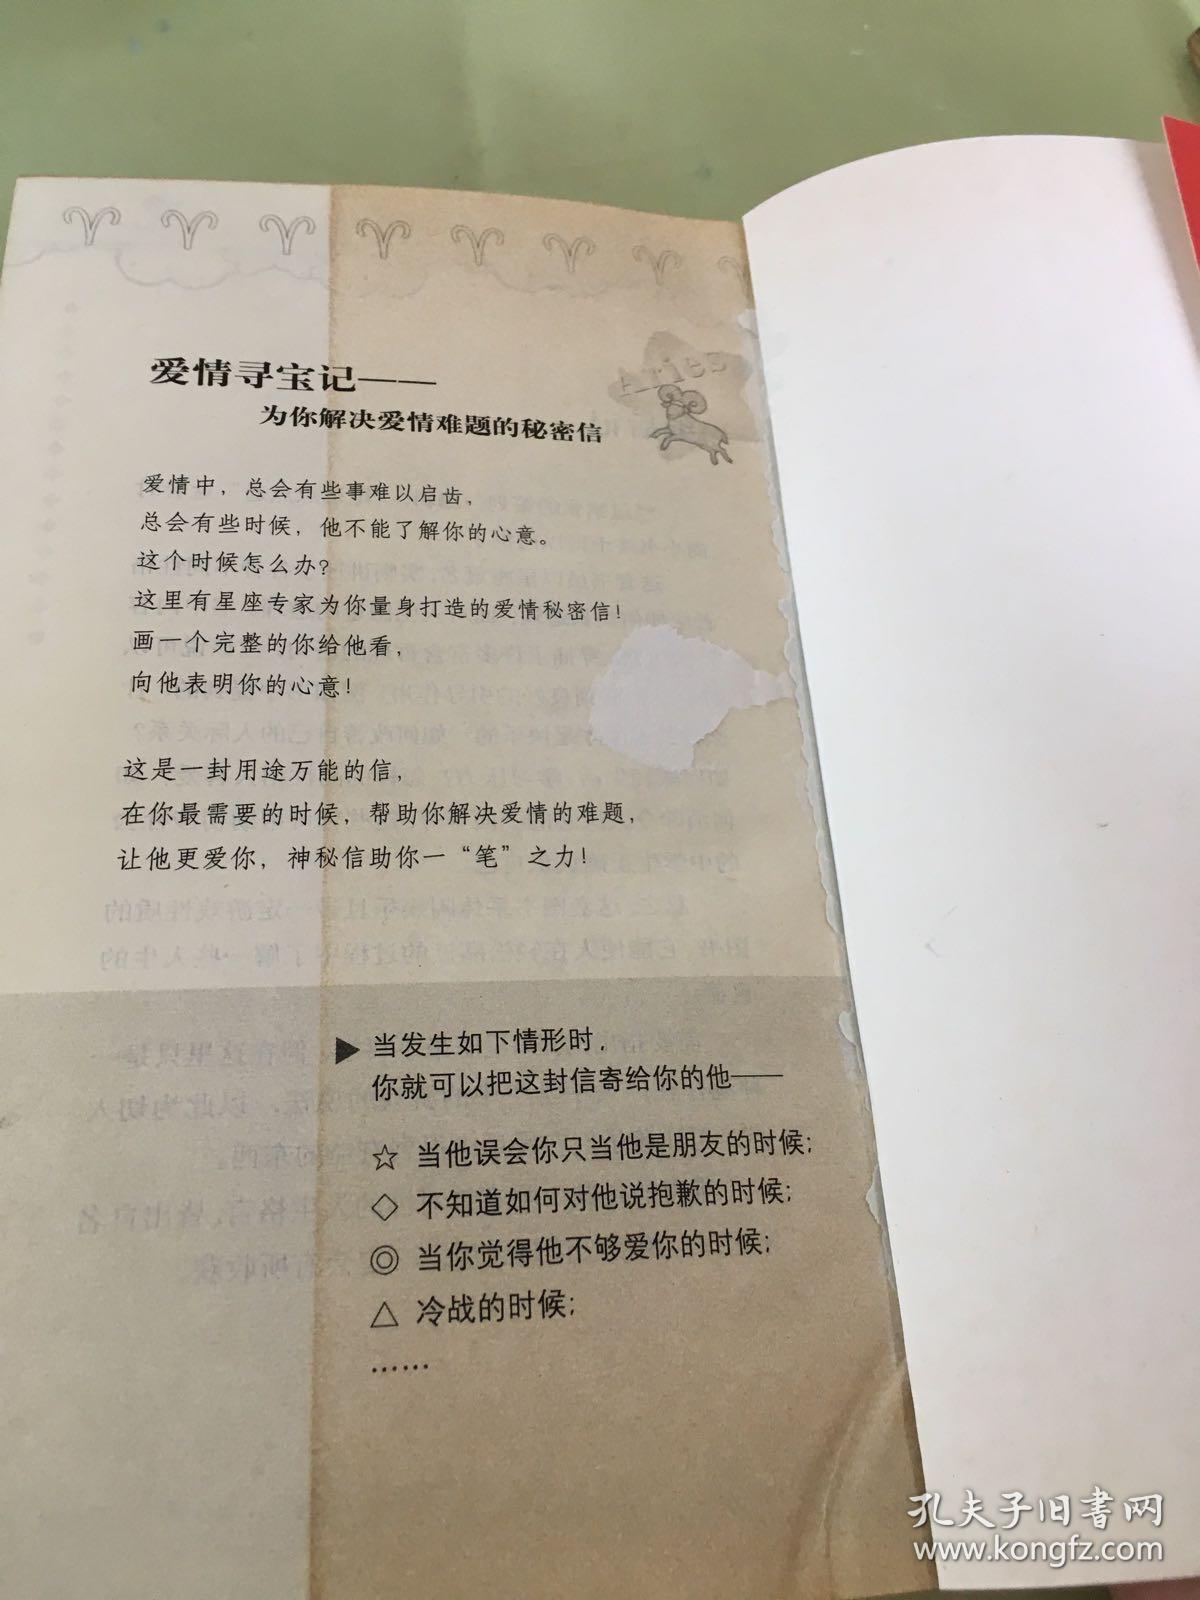 Aries
爱情寻宝记——
为你解决爱情难题的秘密信
爱情中，总会有些事难以启齿，
总会有些时候，他不能了解你的心意。
这个时候怎么办？
这里有星座专家为你量身打造的爱情秘密信！
画一个完整的你给他看，
向他表明你的心意！
这是一封用途万能的信，
在你最需要的时候，帮助你解决爱情的难题，
让他更爱你，神秘信助你一“笔”之力！
▶ 当发生如下情形时，
你就可以把这封信寄给你的他——
☆ 当他误会你只当他是朋友的时候；
◇ 不知道如何对他说抱歉的时候；
◎ 当你觉得他不够爱你的时候；
△ 冷战的时候；
……
孔夫子旧书网
www.kongfz.com